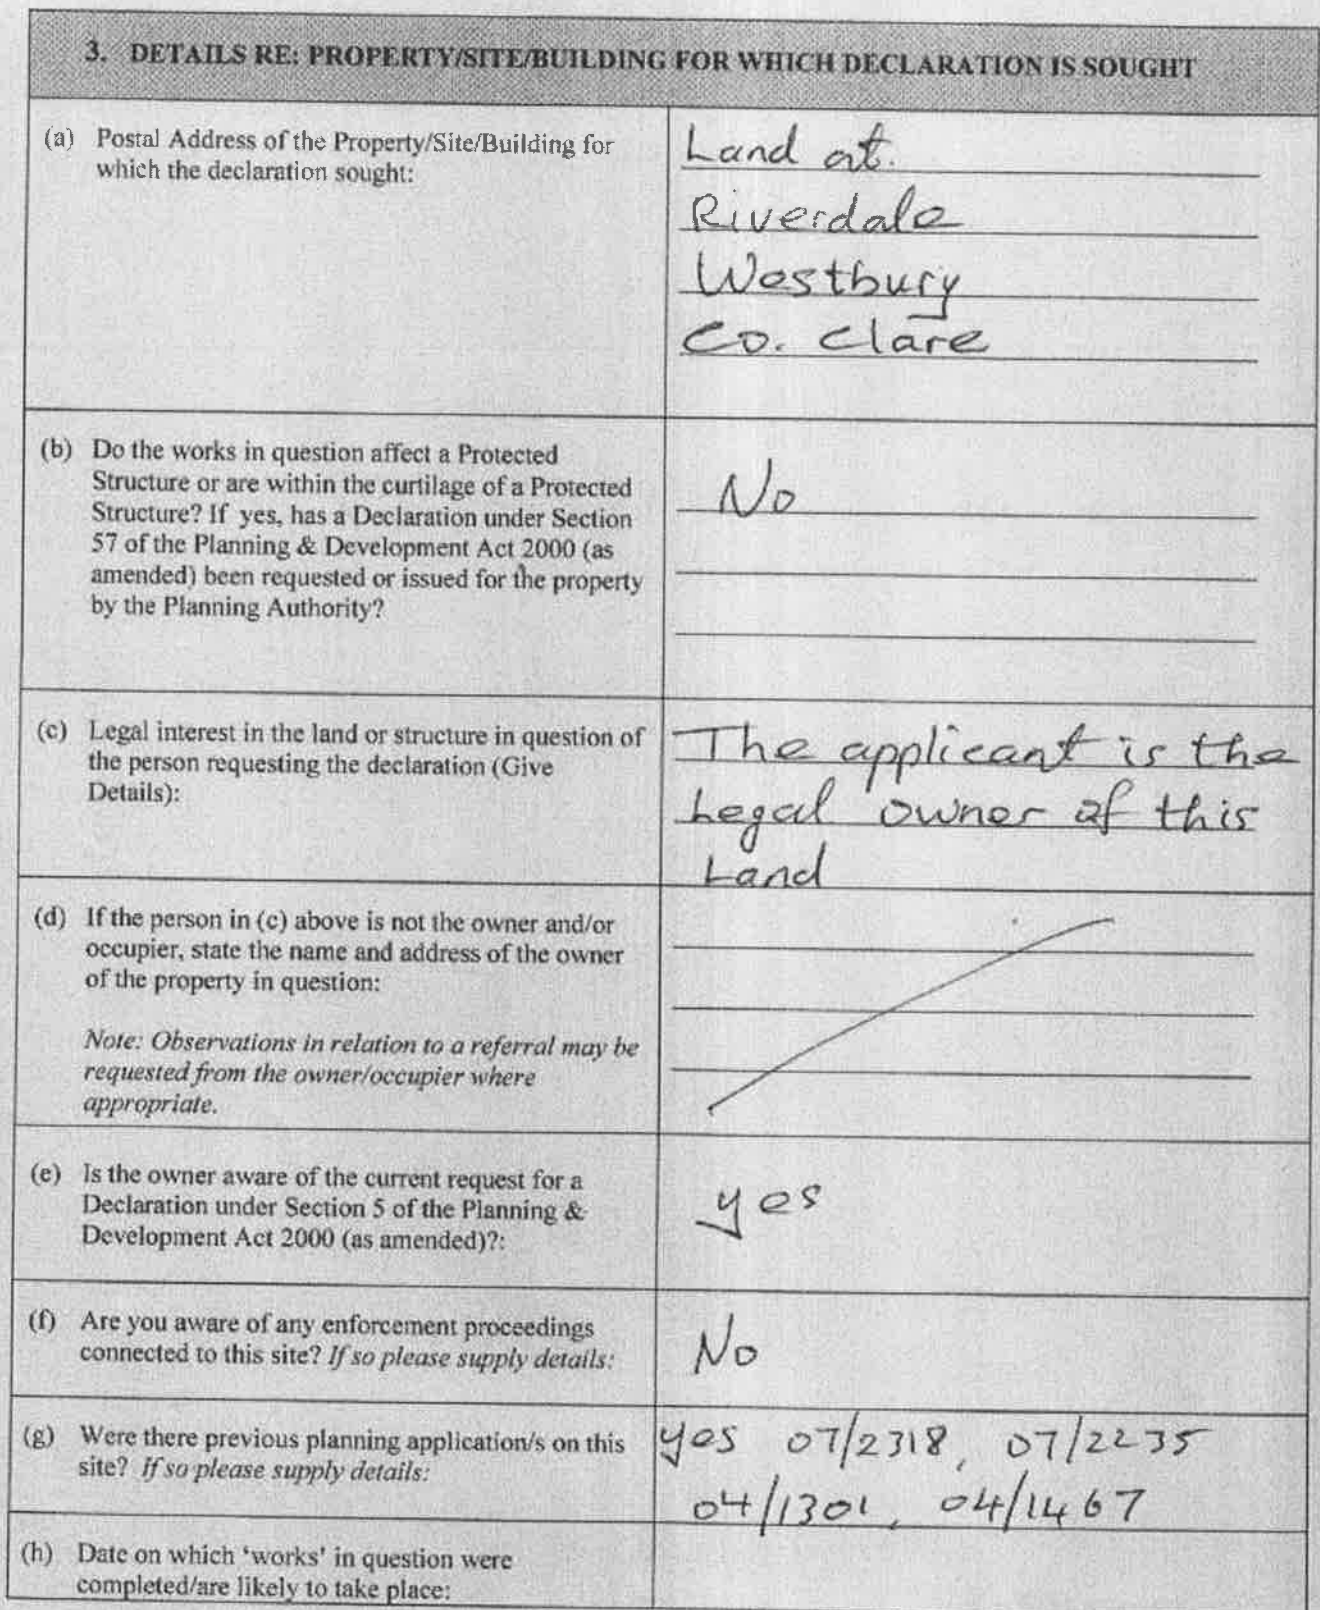 3. DETAILS RE: PROPERTY/SITE/BUILDING FOR WHICH DECLARATION IS SOUGHT
(a) Postal Address of the Property/Site/Building for
which the declaration sought:
Land at.
Riverdale
Westbury
Co. Clare
(b) Do the works in question affect a Protected
Structure or are within the curtilage of a Protected
Structure? If yes, has a Declaration under Section
57 of the Planning & Development Act 2000 (as
amended) been requested or issued for the property
by the Planning Authority?
No
(c) Legal interest in the land or structure in question of
the person requesting the declaration (Give
Details):
The applicant is the
Legal owner of this
Land
(d) If the person in (c) above is not the owner and/or
occupier, state the name and address of the owner
of the property in question:
Note: Observations in relation to a referral may be
requested from the owner/occupier where
appropriate.
(e) Is the owner aware of the current request for a
Declaration under Section 5 of the Planning &
Development Act 2000 (as amended)?:
yes
(f) Are you aware of any enforcement proceedings
connected to this site? If so please supply details:
No
(g) Were there previous planning application/s on this
site? If so please supply details:
yes 07/2318, 07/2235
04/1301, 04/1467
(h) Date on which 'works' in question were
completed/are likely to take place: